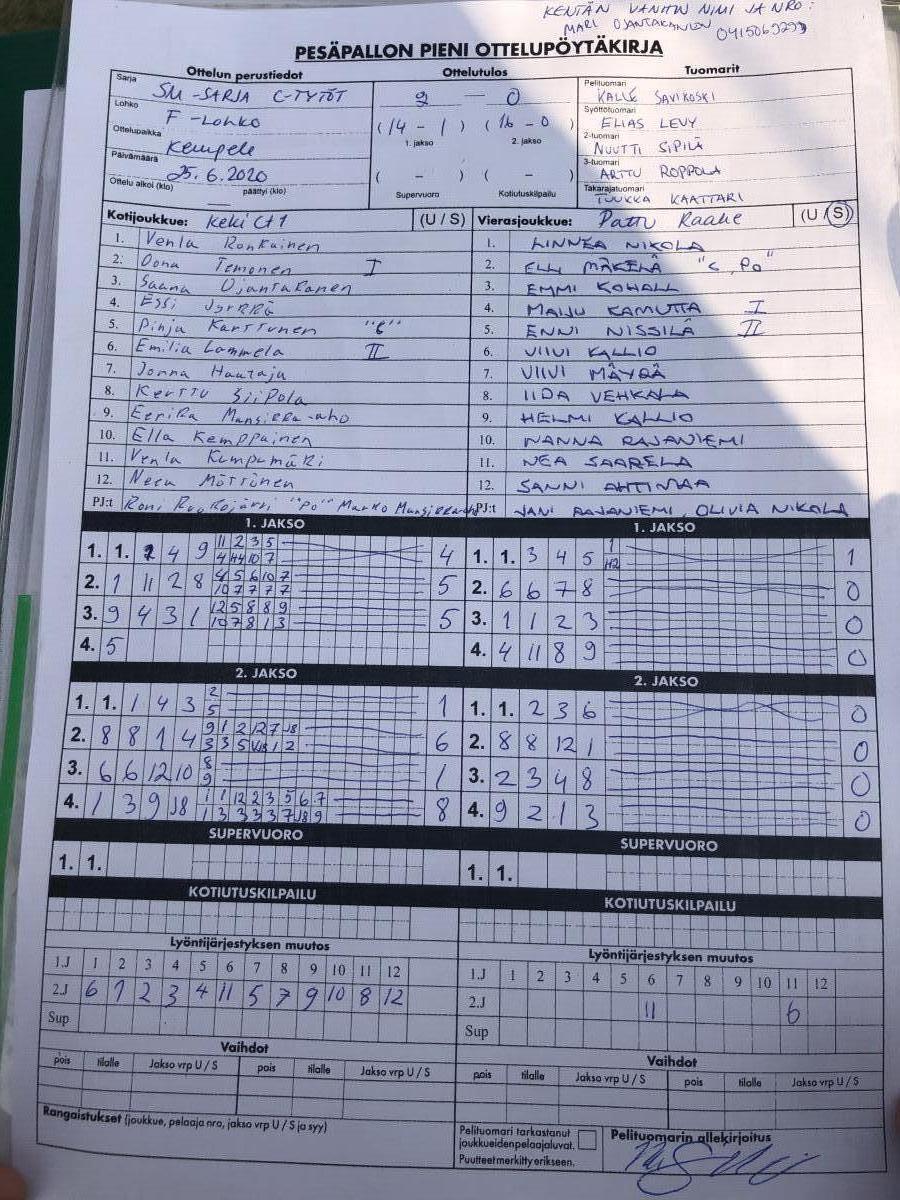 KENTÄN VANHIN NIMI JA NRO:
MARI OJANTAKANEN
PESÄPALLON PIENI OTTELUPÖYTÄKIRJA
Ottelun perustiedot Ottelutulos Tuomarit
Sarja SM-SARJA C-TYTÖT 2 — 0 Pelituomari KALLE SAVIKOSKI
Lohko F-LOHKO (14 - 1) (16 - 0) Syöttötuomari ELIAS LEVY
Ottelupaikka Kempele 1. jakso 2. jakso 2-tuomari NUUTTI SIPILÄ
Päivämäärä 25.6.2020 ( - ) ( - ) 3-tuomari ARTTU ROPPOLA
Ottelu alkoi (klo) päättyi (klo) Supervuoro Kotiutuskilpailu Takarajatuomari TUUKKA KAATTARI
Kotijoukkue: KeKi C+1 (U / S) Vierasjoukkue: Pattu Raahe (U / S)
1. Venla Ronkainen 1. LINNEA NIKOLA
2. Oona Temonen I 2. ELLI MÄKELÄ "C, PO"
3. Saana Ojantakanen 3. EMMI
4. Essi Jyrkkä 4. MAIJU KAMUTTA I
5. Pinja Karttunen "C" 5. ENNI NISSILÄ II
6. Emilia Lammela II 6. VIIVI KALLIO
7. Jonna Hautaja 7. VIIVI MÄYRÄ
8. Kerttu Siipola 8. IIDA VEHKALA
9. Eerika Mansikka-aho 9. HELMI KALLIO
10. Ella Kemppainen 10. NANNA RAJANIEMI
11. Venla Kumpumäki 11. NEA SAARELA
12. Neea Möttönen 12. SANNI AHTIMAA
PJ:t Roni "PO" Marko PJ:t JANI RAJANIEMI, OLIVIA NIKOLA
1. JAKSO 1. JAKSO
1. 1. 2 4 9 11 2 3 5 4 1. 1. 3 4 5 1 1
2. 1 11 2 8 4 5 6 10 7 5 2. 6 6 7 8 0
10 7 7 7 7
3. 9 4 3 1 12 5 8 8 9 5 3. 1 1 2 3 0
10 7 8 1 3
4. 5 4. 4 11 8 9 0
2. JAKSO 2. JAKSO
1. 1. 1 4 3 2 1 1. 1. 2 3 6 0
5
2. 8 8 1 4 6 2. 8 8 12 1 0
3. 6 6 12 10 8 1 3. 2 3 4 8 0
9
4. 1 3 9 J8 1 1 12 2 3 5 6 7 8 4. 9 2 1 3 0
1 3 3 3 3 7 J8 9
SUPERVUORO SUPERVUORO
1. 1. 1. 1.
KOTIUTUSKILPAILU KOTIUTUSKILPAILU
Lyöntijärjestyksen muutos Lyöntijärjestyksen muutos
1.J 1 2 3 4 5 6 7 8 9 10 11 12 1.J 1 2 3 4 5 6 7 8 9 10 11 12
2.J 6 1 2 3 4 11 5 7 9 10 8 12 2.J 11 6
Sup Sup
Vaihdot Vaihdot
pois tilalle Jakso vrp U / S pois tilalle Jakso vrp U / S pois tilalle Jakso vrp U / S pois tilalle Jakso vrp U / S
Rangaistukset (joukkue, pelaaja nro, jakso vrp U / S ja syy)
Pelituomari tarkastanut
joukkueidenpelaajaluvat.
Puutteet merkitty erikseen.
Pelituomarin allekirjoitus